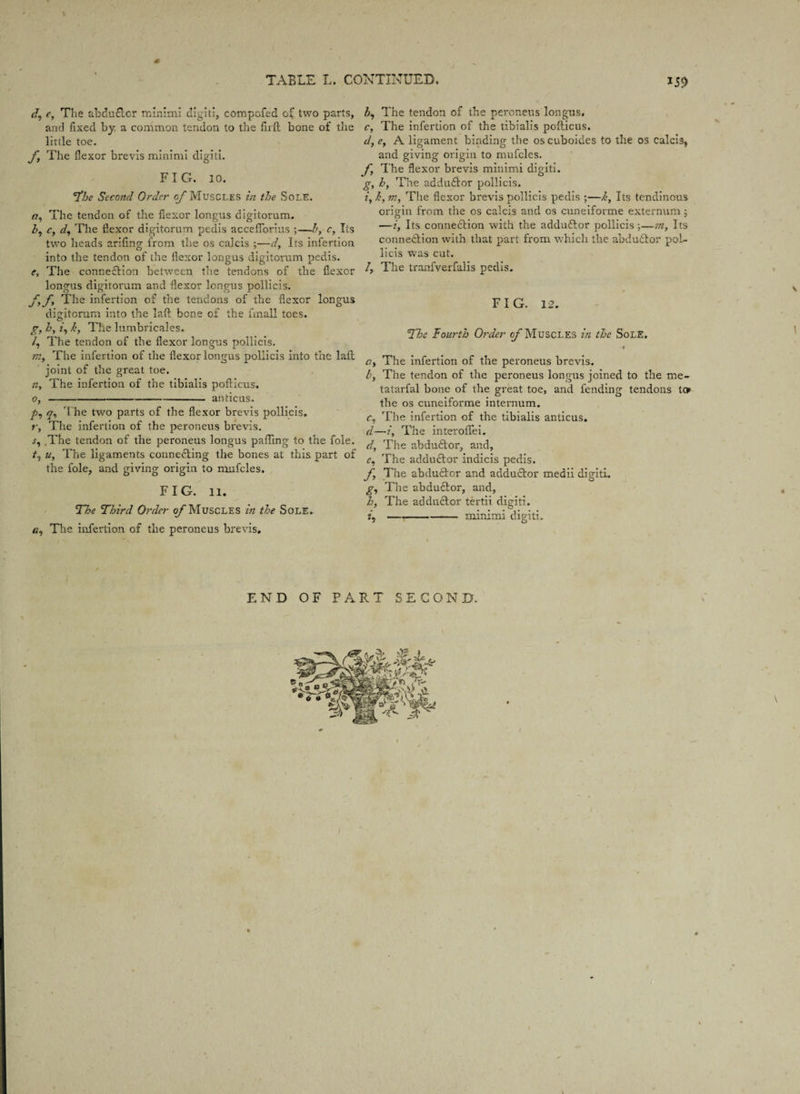 TABLE L. CONTINUED.
159
d, e, The abduƈtor minimi digiti, compoſed of two parts,
and fixed by a common tendon to the firſt bone of the
little toe.
f, The flexor brevis minimi digiti.
FIG. 10.
The Second Order of MUSCLES in the SOLE.
a, The tendon of the flexor longus digitorum.
b, c, d, The flexor digitorum pedis acceſſorius ;—b, c, Its
two heads ariſing from the os calcis ;—d, Its inſertion
into the tendon of the flexor longus digitorum pedis.
e, The connection between the tendons of the flexor
longus digitorum and flexor longus pollicis.
f, f, The inſertion of the tendons of the flexor longus
digitorum into the laſt bone of the ſmall toes.
g, h, i, k, The lumbricales.
l, The tendon of the flexor longus pollicis.
m, The inſertion of the flexor longus pollicis into the laſt
joint of the great toe.
n, The inſertion of the tibialis poſticus.
o, —————————— anticus.
p, q, The two parts of the flexor brevis pollicis.
r, The inſertion of the peroneus brevis.
s, The tendon of the peroneus longus paſſing to the ſole.
t, u, The ligaments connecting the bones at this part of
the ſole, and giving origin to muſcles.
FIG. 11.
The Third Order of MUSCLES in the SOLE.
a, The inſertion of the peroneus brevis.
b, The tendon of the peroneus longus.
c, The inſertion of the tibialis poſticus.
d, e, A ligament binding the os cuboides to the os calcis,
and giving origin to muſcles.
f, The flexor brevis minimi digiti.
g, h, The adductor pollicis.
i, k, m, The flexor brevis pollicis pedis ;—k, Its tendinous
origin from the os calcis and os cuneiforme externum ;
—i, Its connection with the adductor pollicis ;—m, Its
connection with that part from which the abductor pol-
licis was cut.
l, The tranſverſalis pedis.
FIG. 12.
The Fourth Order of MUSCLES in the SOLE.
a, The inſertion of the peroneus brevis.
b, The tendon of the peroneus longus joined to the me-
tatarſal bone of the great toe, and ſending tendons to
the os cuneiforme internum.
c, The inſertion of the tibialis anticus.
d—i, The interoſſei.
d, The abductor, and,
e, The adductor indicis pedis.
f, The abductor and adductor medii digiti.
g, The abductor, and,
h, The adductor tertii digiti.
i, ————— minimi digiti.
END OF PART SECOND.